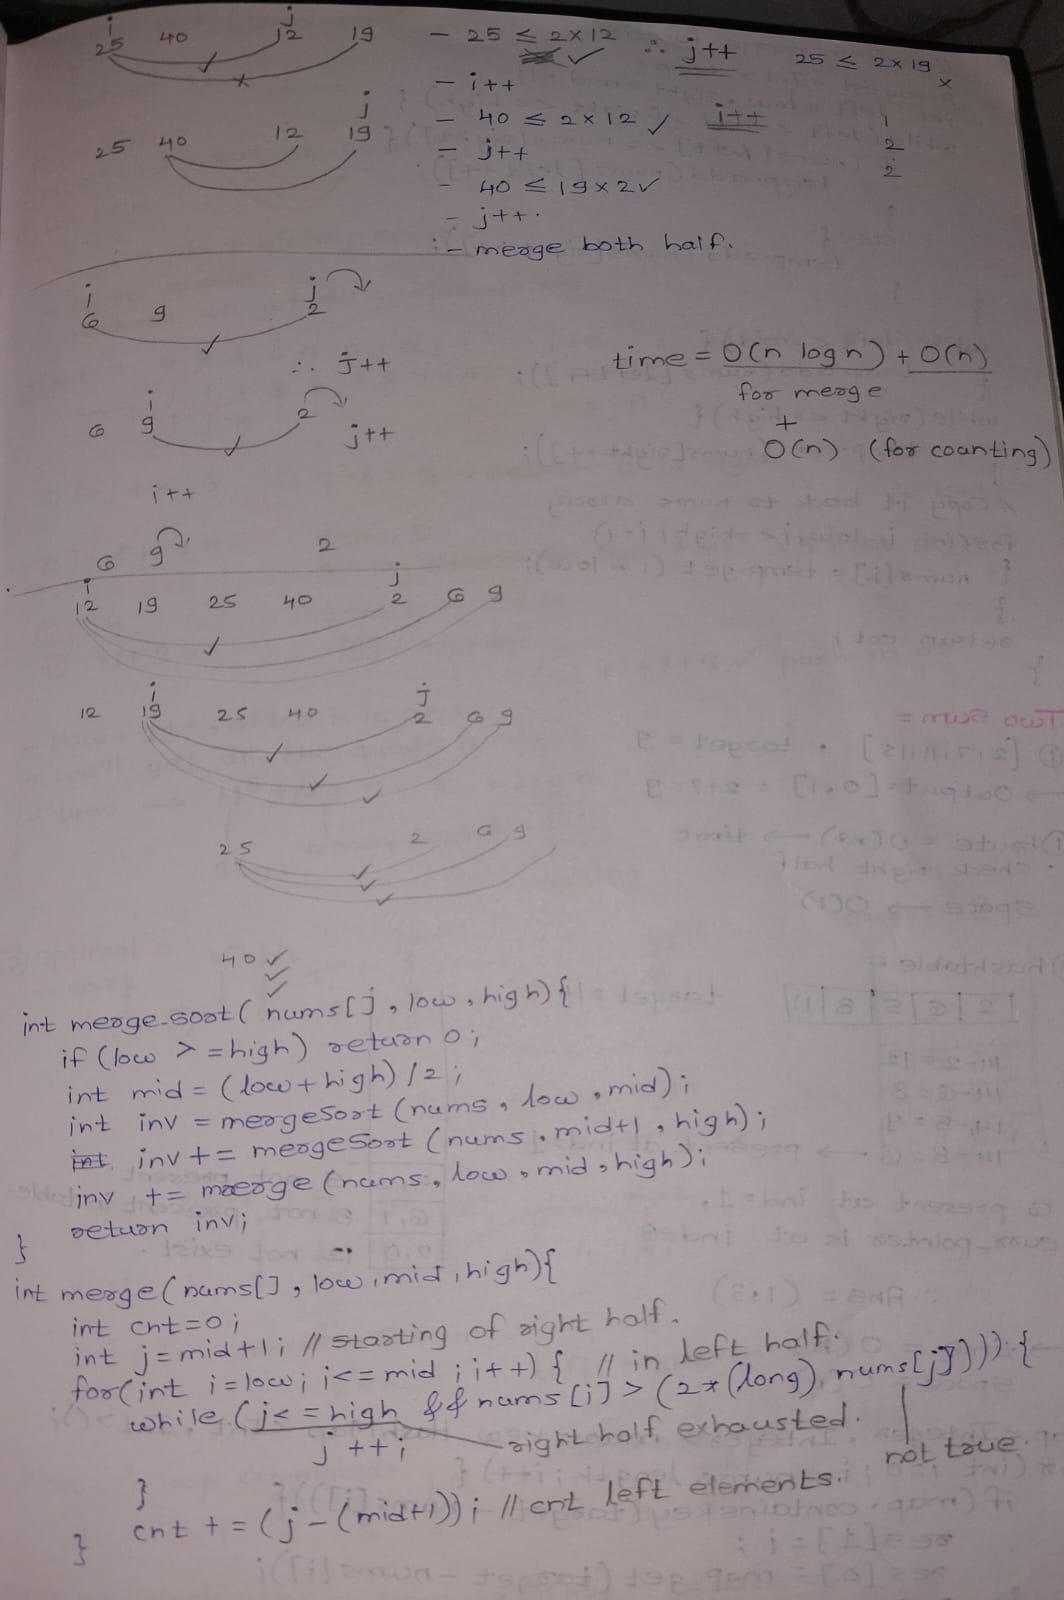 i j
25 40 12 19 - 25 ≤ 2×12 ✓ ∴ j++ 25 ≤ 2×19 ×
✓
×
- i++
j - 40 ≤ 2×12 ✓ i++ 1
25 40 12 19 - j++ 2
- 40 ≤ 19×2 ✓ 2
- j++.
- merge both half.
i j
6 9 2
✓
∴ j++ time = O(n log n) + O(n)
i for merge
6 9 2 +
✓ j++ O(n) (for counting)
i++
6 9 2
i j
12 19 25 40 2 6 9
✓
i j
12 19 25 40 2 6 9
✓
✓
✓
25 2 6 9
✓
✓
✓
40 ✓
✓
✓
int merge-sort( nums[], low, high){
if (low >=high) return 0;
int mid = (low+high)/2;
int inv = mergeSort(nums, low, mid);
inv += mergeSort(nums, mid+1, high);
inv += merge(nums, low, mid, high);
return inv;
}
int merge(nums[], low, mid, high){
int cnt=0;
int j=mid+1; // starting of right half.
for(int i=low; i<=mid; i++) { // in left half.
while (j<=high && nums[i] > (2*(long) nums[j]))) {
j++; right half exhausted. not true.
}
cnt += (j-(mid+1)); // cnt left elements.
}